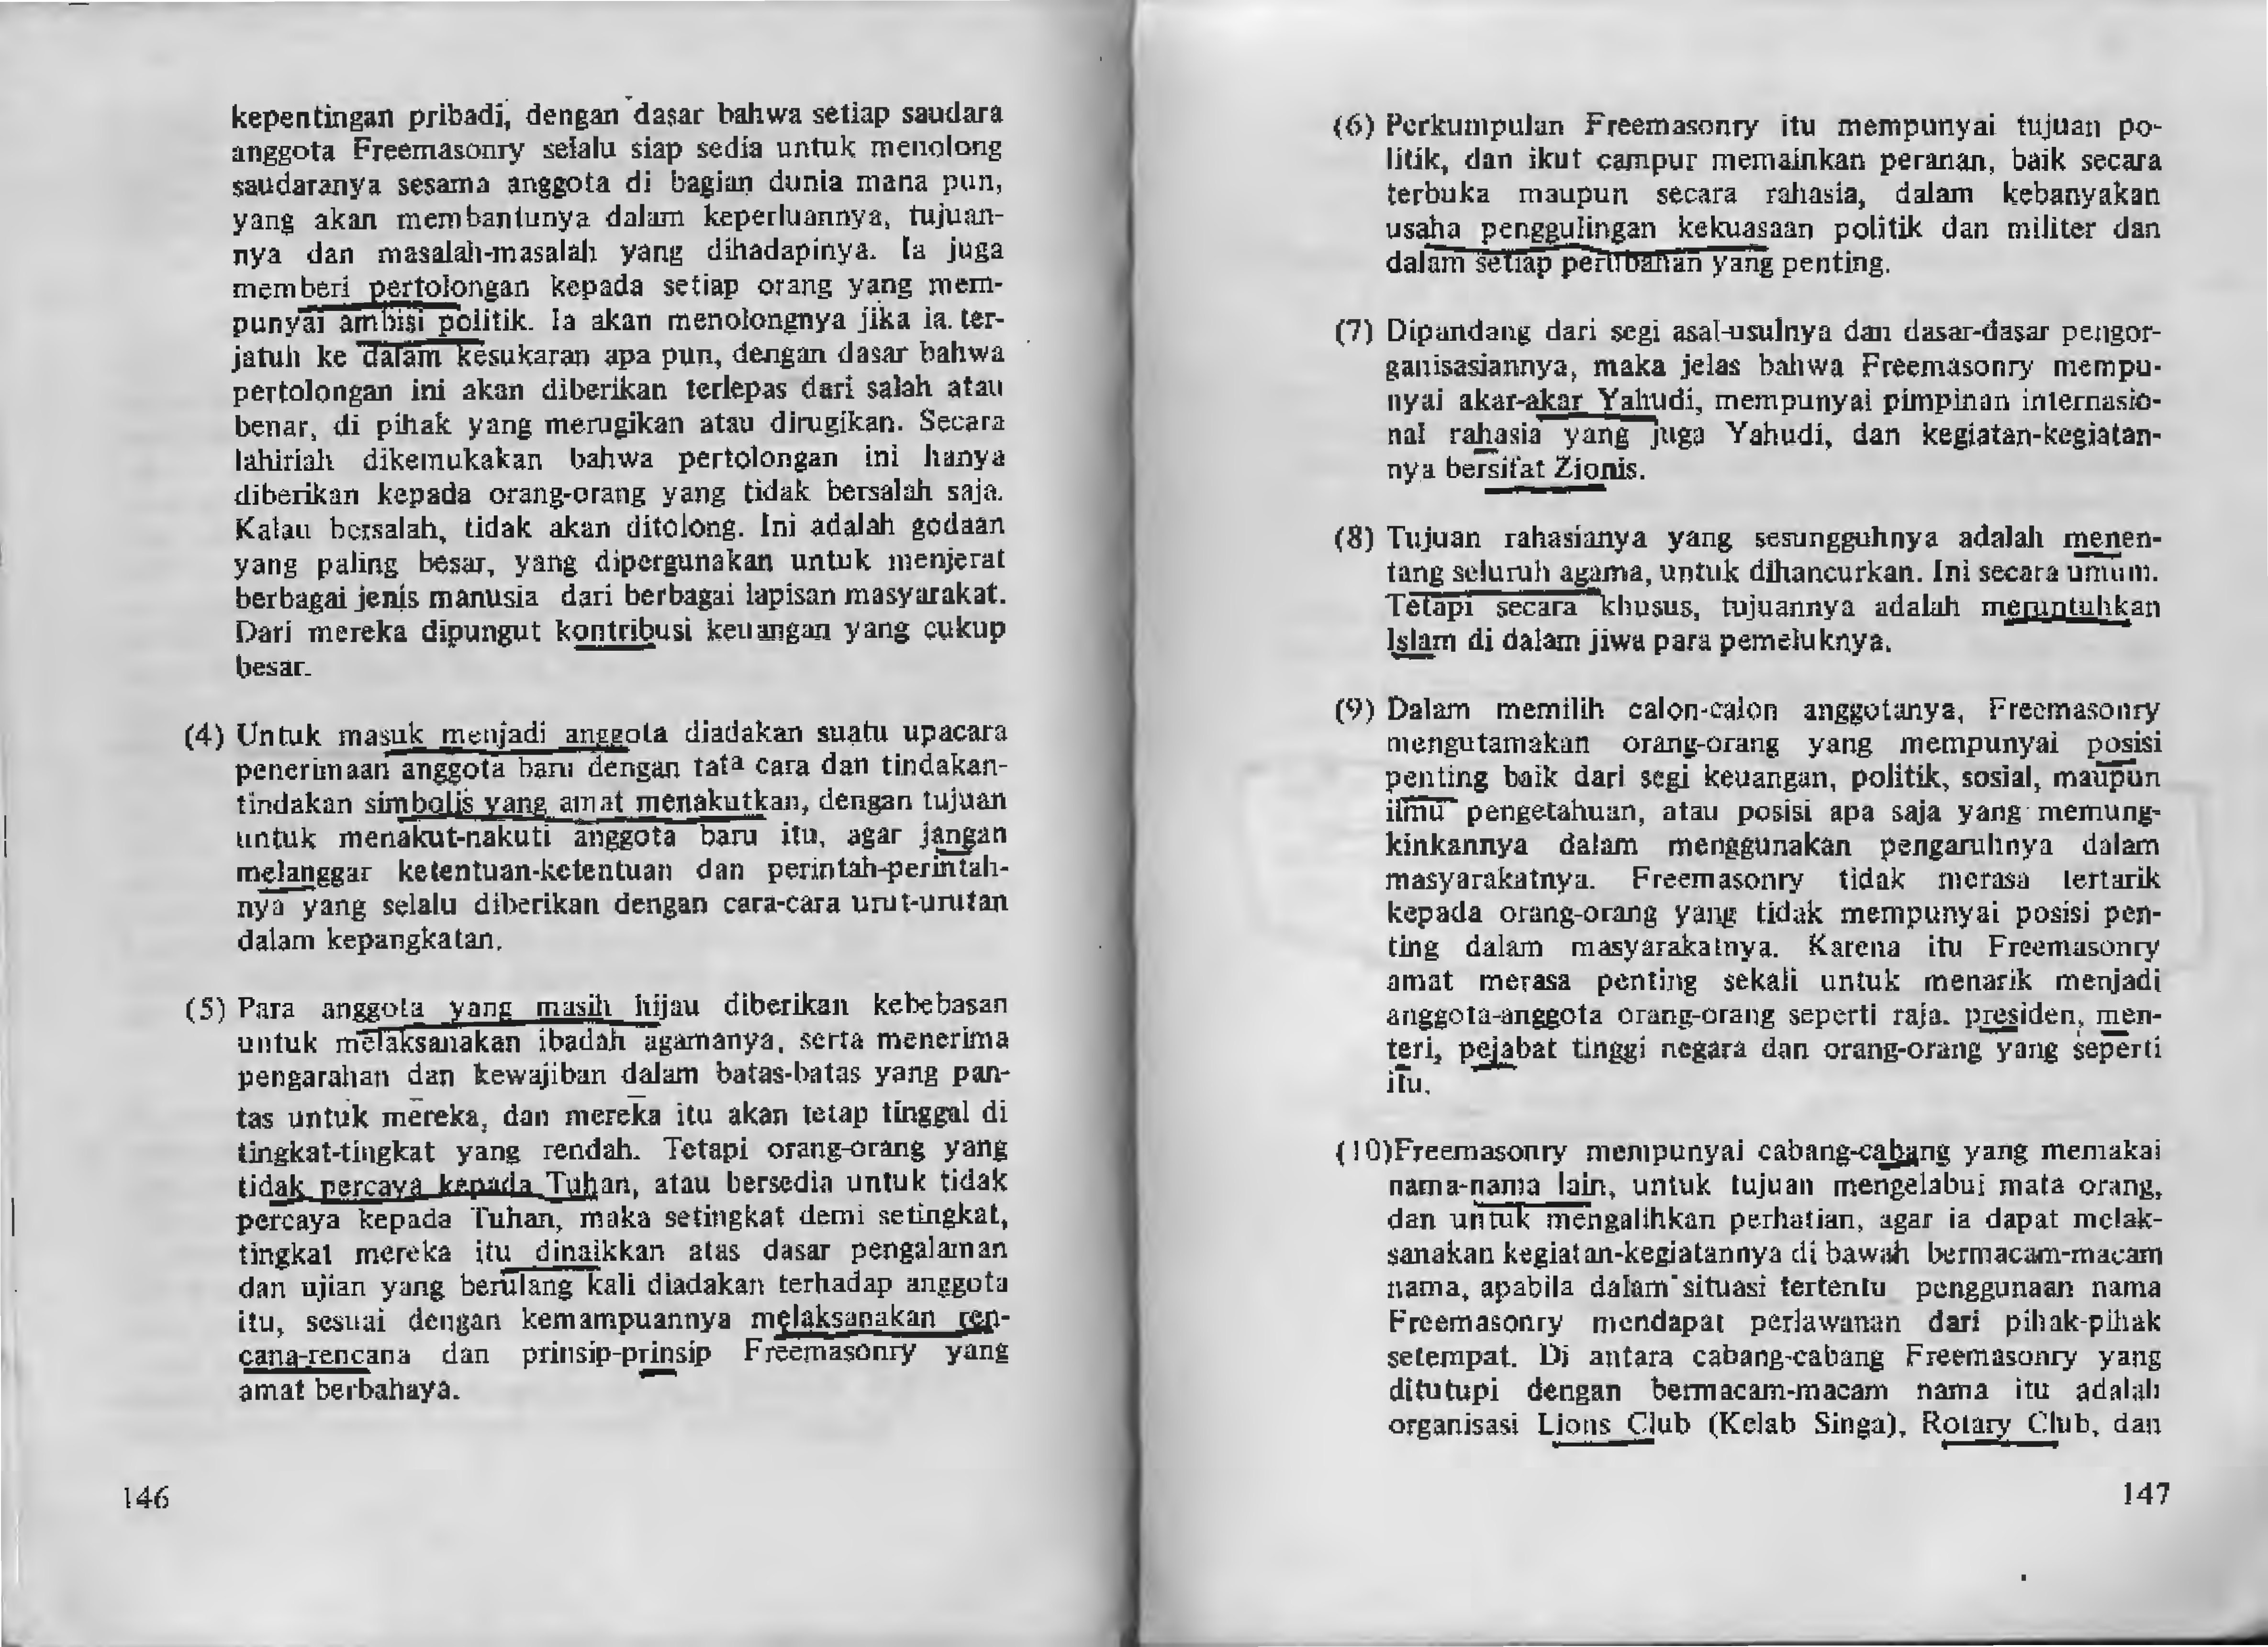 kepentingan pribadi, dengan dasar bahwa setiap saudara
anggota Freemasonry selalu siap sedia untuk menolong
saudaranya sesama anggota di bagian dunia mana pun,
yang akan membantunya dalam keperluannya, tujuan-
nya dan masalah-masalah yang dihadapinya. Ia juga
memberi pertolongan kepada setiap orang yang mem-
punyai ambisi politik. Ia akan menolongnya jika ia ter-
jatuh ke dalam kesukaran apa pun, dengan dasar bahwa
pertolongan ini akan diberikan terlepas dari salah atau
benar, di pihak yang merugikan atau dirugikan. Secara
lahiriah dikemukakan bahwa pertolongan ini hanya
diberikan kepada orang-orang yang tidak bersalah saja.
Kalau bersalah, tidak akan ditolong. Ini adalah godaan
yang paling besar, yang dipergunakan untuk menjerat
berbagai jenis manusia dari berbagai lapisan masyarakat.
Dari mereka dipungut kontribusi keuangan yang cukup
besar.
(4) Untuk masuk menjadi anggota diadakan suatu upacara
penerimaan anggota baru dengan tata cara dan tindakan-
tindakan simbolis yang amat menakutkan, dengan tujuan
untuk menakut-nakuti anggota baru itu, agar jangan
melanggar ketentuan-ketentuan dan perintah-perintah-
nya yang selalu diberikan dengan cara-cara urut-urutan
dalam kepangkatan.
(5) Para anggota yang masih hijau diberikan kebebasan
untuk melaksanakan ibadah agamanya, serta menerima
pengarahan dan kewajiban dalam batas-batas yang pan-
tas untuk mereka, dan mereka itu akan tetap tinggal di
tingkat-tingkat yang rendah. Tetapi orang-orang yang
tidak percaya kepada Tuhan, atau bersedia untuk tidak
percaya kepada Tuhan, maka setingkat demi setingkat,
tingkat mereka itu dinaikkan atas dasar pengalaman
dan ujian yang berulang kali diadakan terhadap anggota
itu, sesuai dengan kemampuannya melaksanakan ren-
cana-rencana dan prinsip-prinsip Freemasonry yang
amat berbahaya.
146
(6) Perkumpulan Freemasonry itu mempunyai tujuan po-
litik, dan ikut campur memainkan peranan, baik secara
terbuka maupun secara rahasia, dalam kebanyakan
usaha penggulingan kekuasaan politik dan militer dan
dalam setiap perubahan yang penting.
(7) Dipandang dari segi asal-usulnya dan dasar-dasar pengor-
ganisasiannya, maka jelas bahwa Freemasonry mempu-
nyai akar-akar Yahudi, mempunyai pimpinan internasio-
nal rahasia yang juga Yahudi, dan kegiatan-kegiatan-
nya bersifat Zionis.
(8) Tujuan rahasianya yang sesungguhnya adalah menen-
tang seluruh agama, untuk dihancurkan. Ini secara umum.
Tetapi secara khusus, tujuannya adalah meruntuhkan
Islam di dalam jiwa para pemeluknya.
(9) Dalam memilih calon-calon anggotanya, Freemasonry
mengutamakan orang-orang yang mempunyai posisi
penting baik dari segi keuangan, politik, sosial, maupun
ilmu pengetahuan, atau posisi apa saja yang memung-
kinkannya dalam menggunakan pengaruhnya dalam
masyarakatnya. Freemasonry tidak merasa tertarik
kepada orang-orang yang tidak mempunyai posisi pen-
ting dalam masyarakatnya. Karena itu Freemasonry
amat merasa penting sekali untuk menarik menjadi
anggota-anggota orang-orang seperti raja. presiden, men-
teri, pejabat tinggi negara dan orang-orang yang seperti
itu.
(10)Freemasonry mempunyai cabang-cabang yang memakai
nama-nama lain, untuk tujuan mengelabui mata orang,
dan untuk mengalihkan perhatian, agar ia dapat melak-
sanakan kegiatan-kegiatannya di bawah bermacam-macam
nama, apabila dalam situasi tertentu penggunaan nama
Freemasonry mendapat perlawanan dari pihak-pihak
setempat. Di antara cabang-cabang Freemasonry yang
ditutupi dengan bermacam-macam nama itu adalah
organisasi Lions Club (Kelab Singa), Rotary Club, dan
147